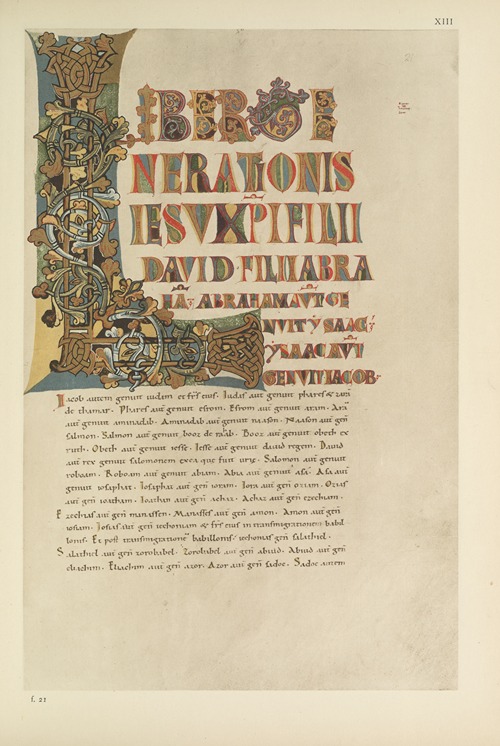 XIII
LIBER GE
NERATIONIS
IESU XPI FILII
DAVID · FILII ABRA
HĀ; ABRAHAM AUT̄ GE
NUIT ẎSAAC;
ẎSAAC AUT̄
GENUIT IACOB·
Iacob autem genuit iudam et fr̄s eius. Iudas aut̄ genuit phares & zarā
de thamar. Phares aut̄ genuit esrom. Esrom aut̄ genuit aram. Arā
aut̄ genuit aminadab. Aminadab aut̄ genuit naason. Naason aut̄ geñ
salmon. Salmon aut̄ genuit booz de raab. Booz aut̄ genuit obeth ex
ruth. Obeth aut̄ genuit iesse. Iesse aut̄ genuit dauid regem. Dauid
aut̄ rex genuit salomonem ex ea que fuit urię. Salomon aut̄ genuit
roboam. Roboam aut̄ genuit abiam. Abia aut̄ genuit asa. Asa aut̄
genuit iosaphat. Iosaphat aut̄ geñ ioram. Iora aut̄ geñ oziam. Ozias
aut̄ geñ ioatham. Ioatham aut̄ geñ achaz. Achaz aut̄ geñ ezechiam.
Ezechias aut̄ geñ manassen. Manasses aut̄ geñ amon. Amon aut̄ geñ
iosiam. Iosias aut̄ geñ iechoniam & fr̄s eius in transmigratione babil
lonis. Et post transmigrationē babillonis; iechonias geñ salathiel.
Salathiel aut̄ geñ zorobabel. Zorobabel aut̄ geñ abiud. Abiud aut̄ geñ
eliachim. Eliachim aut̄ geñ azor. Azor aut̄ geñ sadoc. Sadoc autem
f. 21